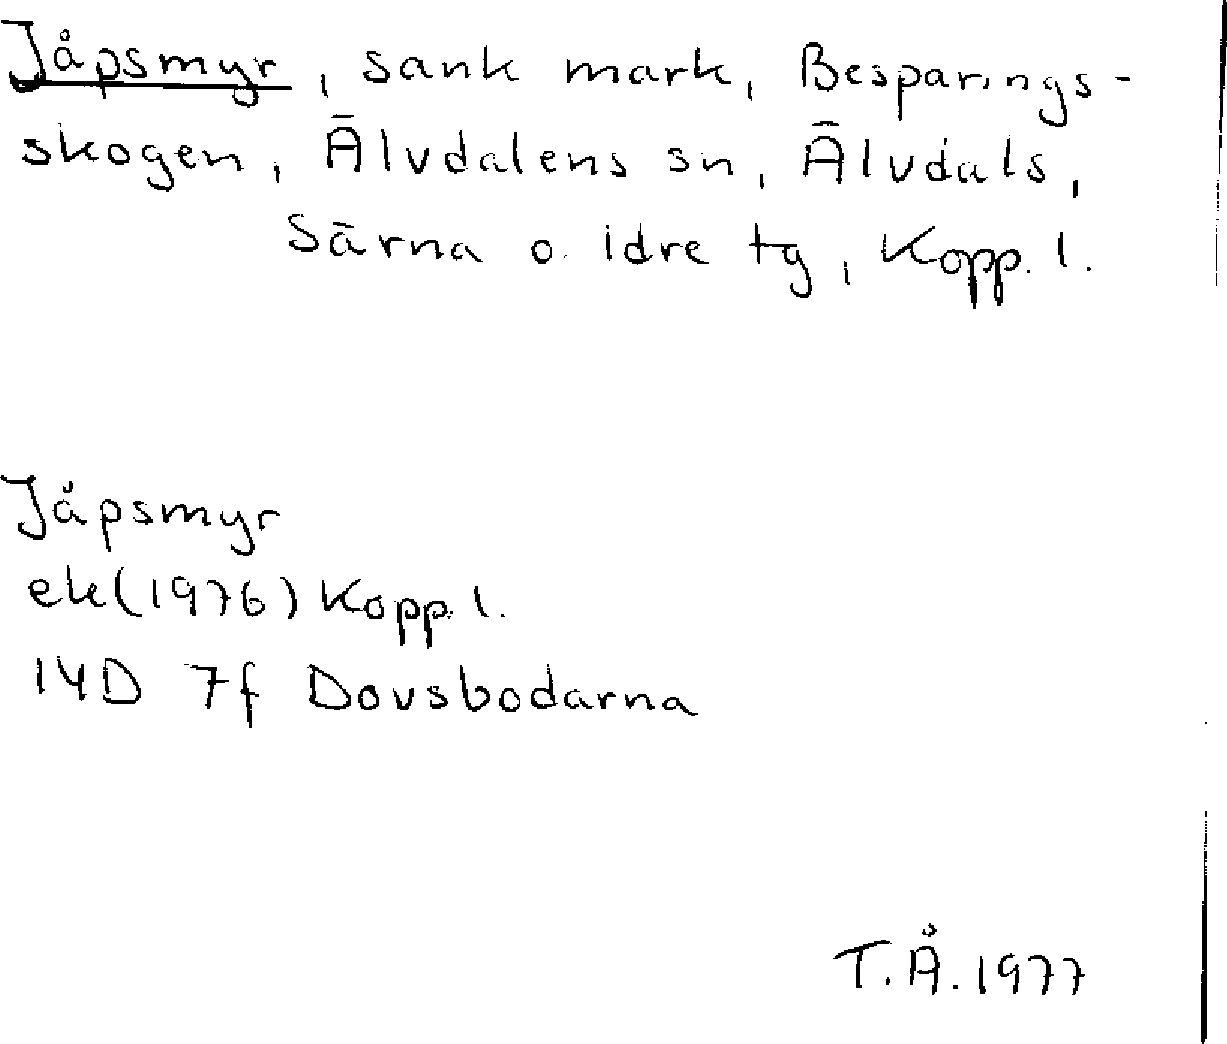 Jåpsmyr, sank mark, Besparings-
skogen, Älvdalens sn, Älvdals,
Särna o. Idre tg, Kopp. l.
Jåpsmyr
ek(1976) Kopp. l.
14D 7f Dovsbodarna
T.Å. 1977